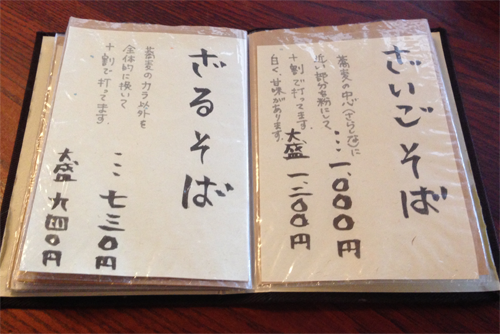 ざいごそば
蕎麦の中心(さらしな)に
近い部分を粉にして、
十割で打ってます。
白く、甘味があります。
…一、000円
大盛 一、二00円
ざるそば
蕎麦のカラ以外を
全体的に挽いて
十割で打ってます。
…七三0円
大盛 九四0円